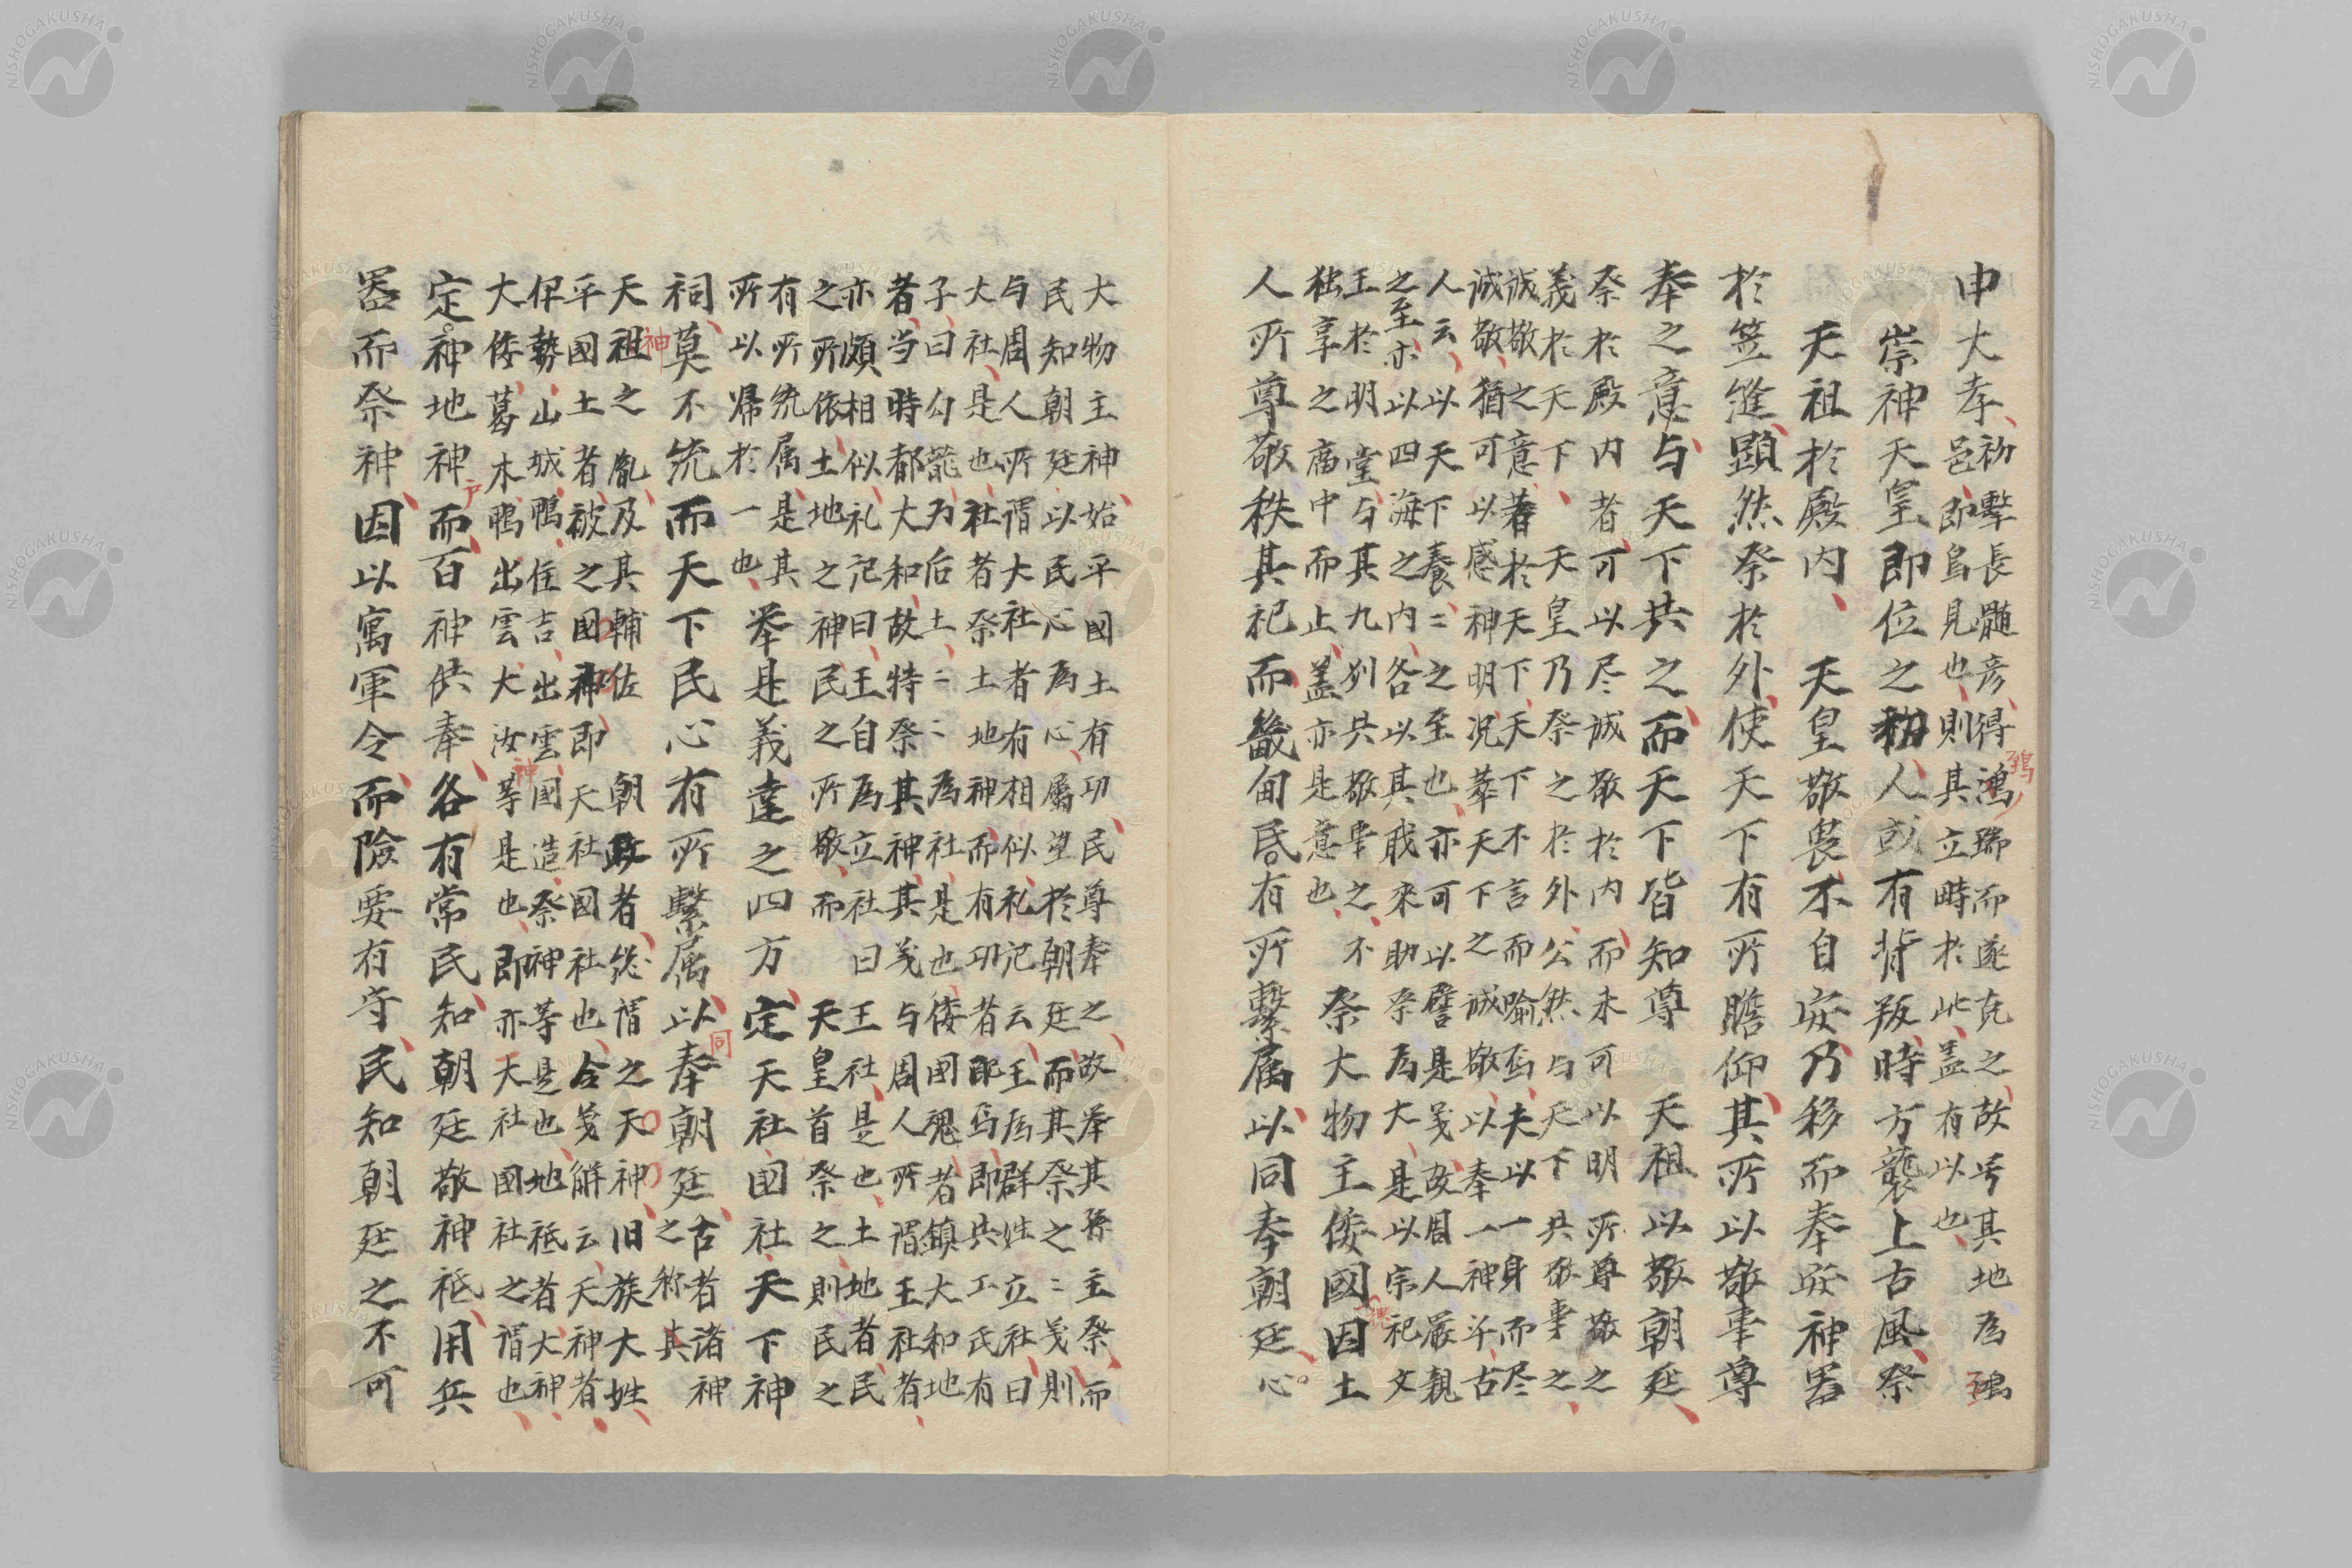 申大孝、初擊長髓彦、得鴻瑞而遂克之、故号其地為鵄
邑、即鳥見也、則其立畤於此、盖有以也、
崇神天皇即位之初、人或有背叛、時方襲上古風、祭
天祖於殿内、 天皇敬畏不自安、乃移而奉安神器
於笠縫、顕然祭於外、使天下有所瞻仰、其所以敬事尊
奉之意、与天下共之、而天下皆知尊 天祖以敬朝廷、
祭於殿内者可以尽誠敬於内、而未可以明所尊敬之
義於天下、 天皇乃祭之於外、公然与天下共敬事之、
誠敬之意、著於天下、天下不言而喩焉、夫以一身而尽
誠敬、猶可以感神明、況挙天下之誠敬、以奉一神乎、古
人云、以天下養、ニ之至也、亦可以譬是義矣、周人厳親
之至、亦以四海之内、各以其職來助祭為大、是以宗祀文
王於明堂、与其九列共敬事之、不
独享之廟中而止、盖亦是意也、
祭大物主倭國魂、因土
人所尊敬、秩其祀、而畿甸民有所繋属、以同奉朝廷、心。
大物主神始平國土有功、民尊奉之、故挙其孫主祭、而
民知朝廷以民心為心、属望於朝廷、而其祭之ニ義則
与周人所謂大社者有相似、礼記云、王為群姓立社曰
大社、是也、社者祭土地神、而有功者配焉、即共工氏有
子曰勾龍、為后土、ニニ為社、是也、倭國魂者、鎮大和地
者、当時都大和、故特祭其神、其義与周人所謂王社者、
亦頗相似、礼記曰、王自為立社曰王社、是也、土地者民
之所依、土地之神、民之所敬、而 天皇首祭之、則民之
有所統属、是其
所以帰於一也、
挙是義達之四方、定天社国社、天下神
祠莫不統、而天下民心有所繋属、以同奉朝廷、古者諸神
之称其
天祖之胤、及其輔佐 朝政者、総謂之天神、旧族大姓、
平國土者、被之國神、即天社國社也、令義解云、天神者、
伊勢、山城鴨、住吉、出雲國造祭神等是也、地祇者、大神、
大倭、葛木鴨、出雲大汝神等是也、即亦天社國社之謂也、
定神地神戸、而百神供奉、各有常、民知朝廷敬神祇、用兵
器而祭神、因以寓軍令、而險要有守、民知朝廷之不可